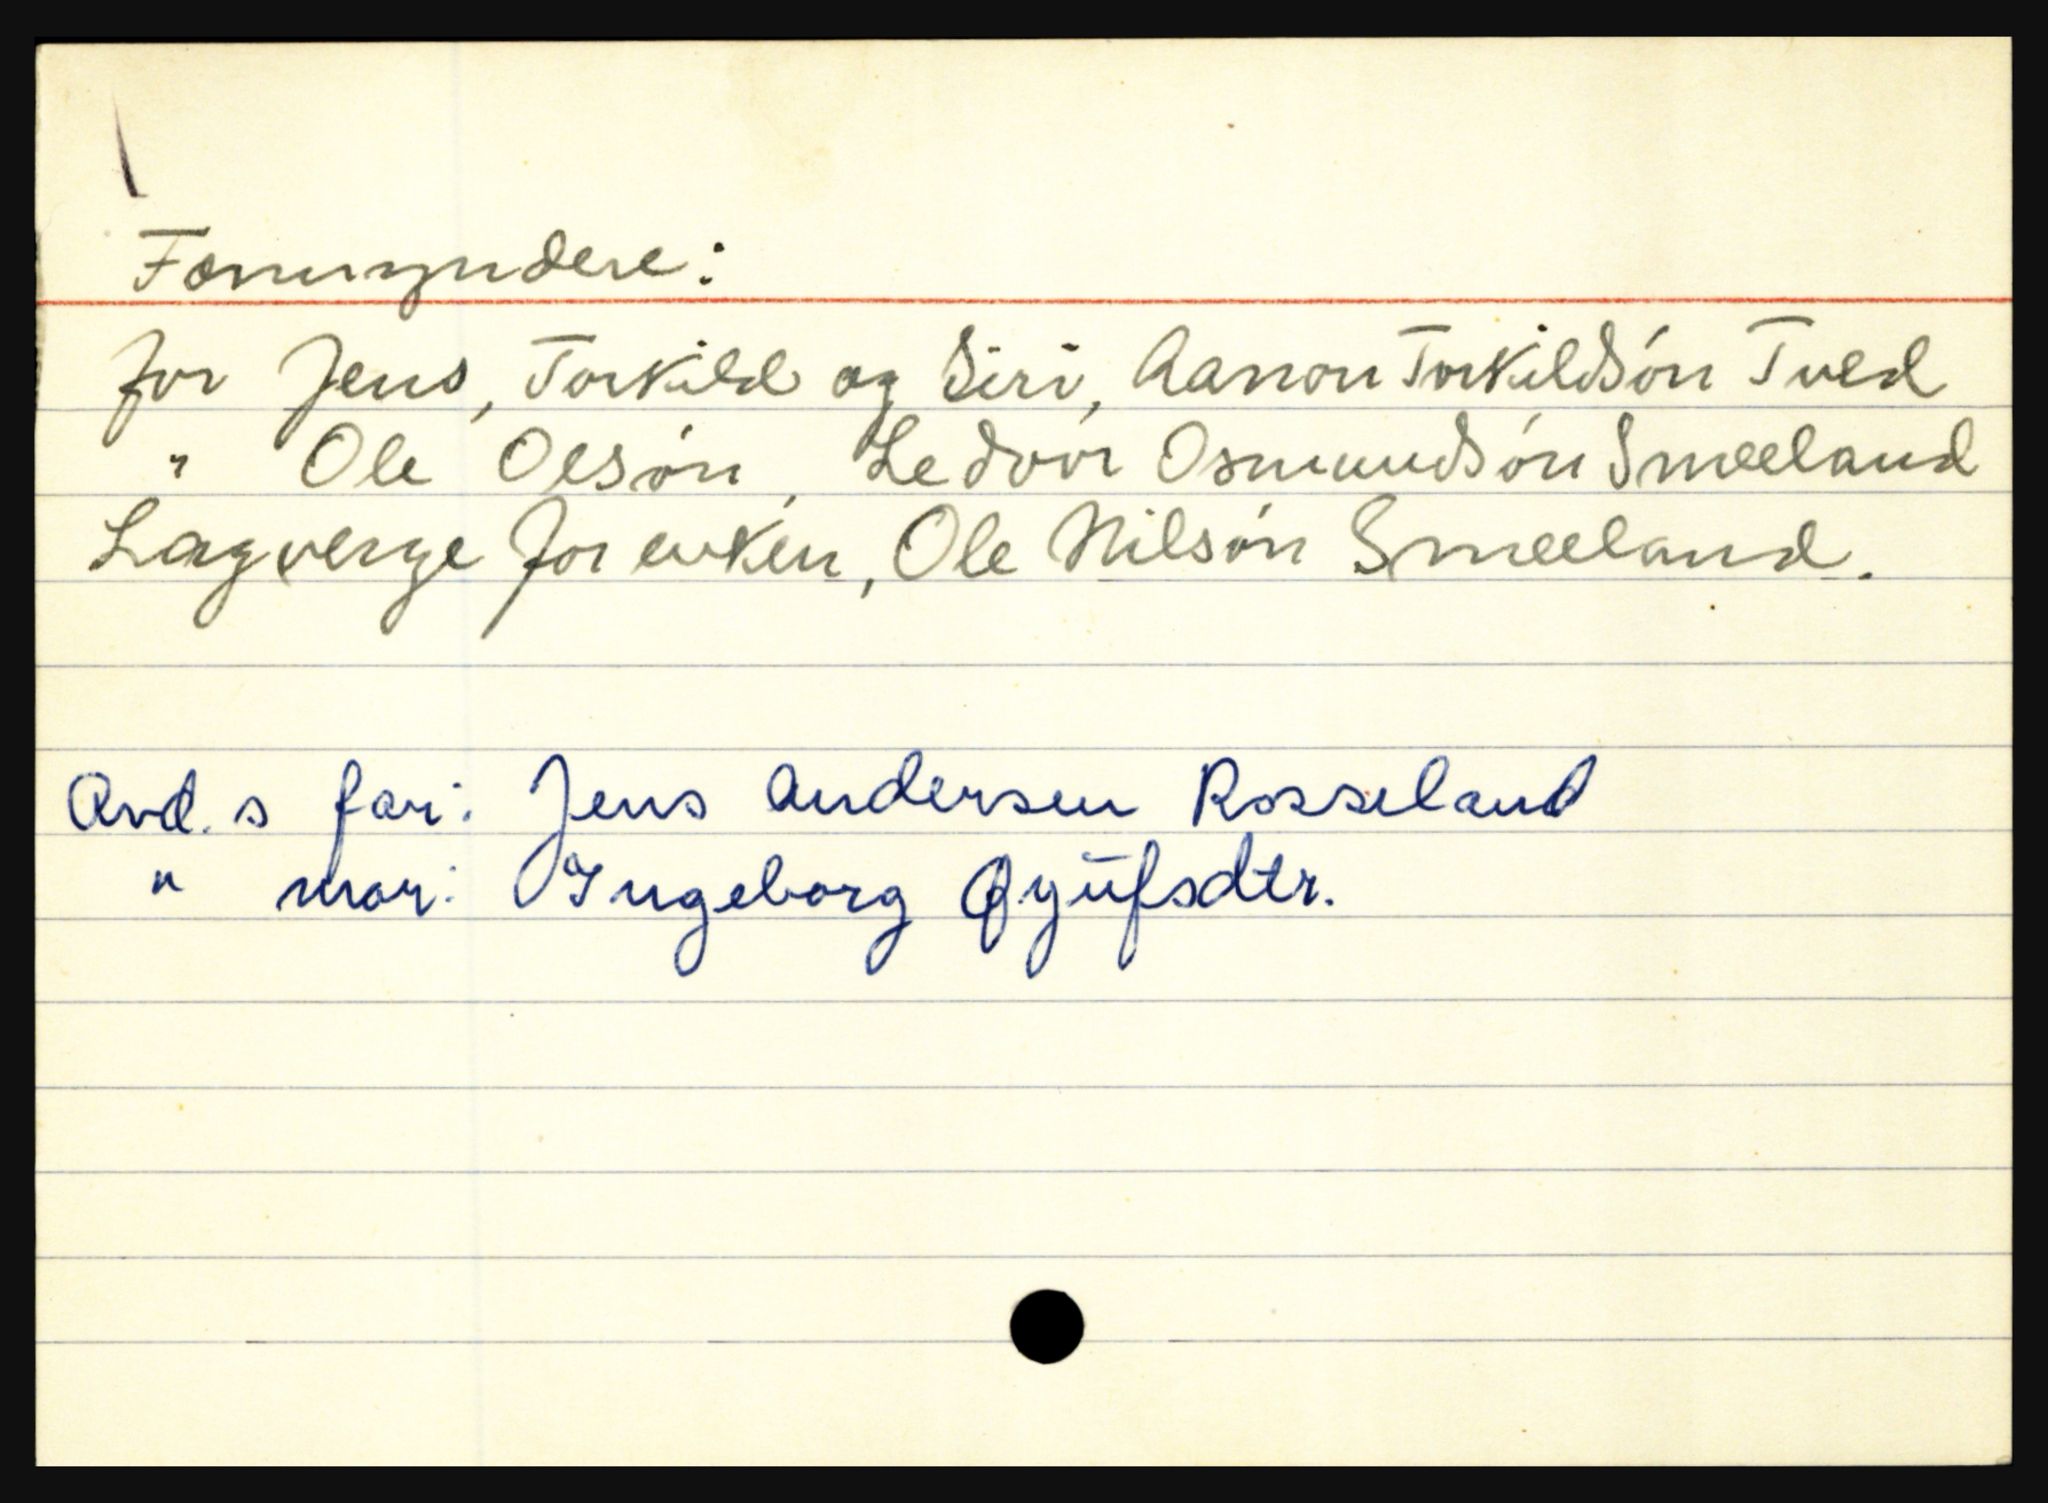 Formyndere:
for Jens, Torkild og Siri, Aanon Torkildsón Tved
" Ole Olsón, Ledvor Osmundsón Smeeland
Lagverge for enken, Ole Nilsón Smeeland.
Avd. s far: Jens Andersen Rosseland
" mor: Ingeborg Øyüfsdtr.